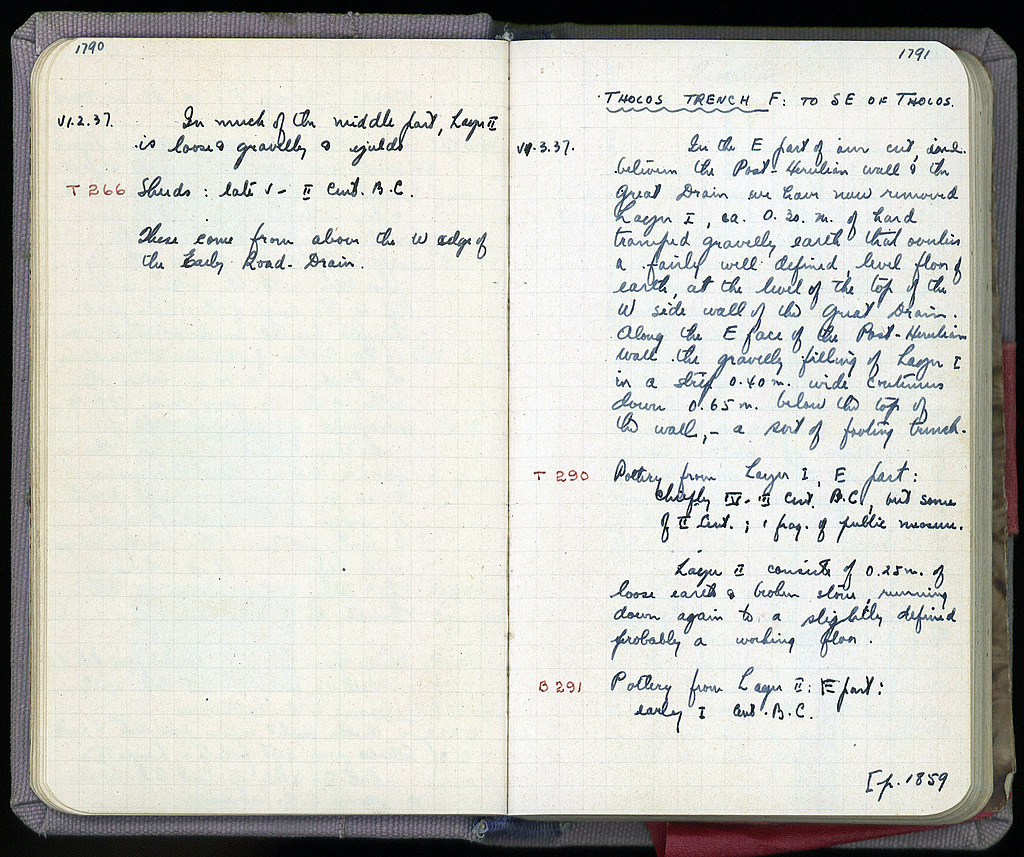 1790
VI.2.37. In much of the middle part, Layer II
is loose & gravelly & yields
T 266 Sherds: late V - II Cent. B.C.
These come from above the W edge of
the Early Road-Drain.
1791
THOLOS TRENCH F: TO SE OF THOLOS.
VI.3.37. In the E part of our cut, and
between the Post-Herulian wall & the
Great Drain we have now removed
Layer I, ca. 0.30 m. of hard
tramped gravelly earth that overlies
a fairly well defined, level floor of
earth, at the level of the top of the
W side wall of the Great Drain.
Along the E face of the Post-Herulian
wall the gravelly filling of Layer I
in a strip 0.40 m. wide continues
down 0.65 m. below the top of
the wall, - a sort of footing trench.
T 290 Pottery from Layer I, E part:
chiefly IV - III Cent. B.C., but some
of II Cent.; 1 frag. of public measure.
Layer II consists of 0.25 m. of
loose earth & broken stone, running
down again to a slightly defined
probably a working floor.
B 291 Pottery from Layer II: E part:
early I Cent. B.C.
[p. 1859